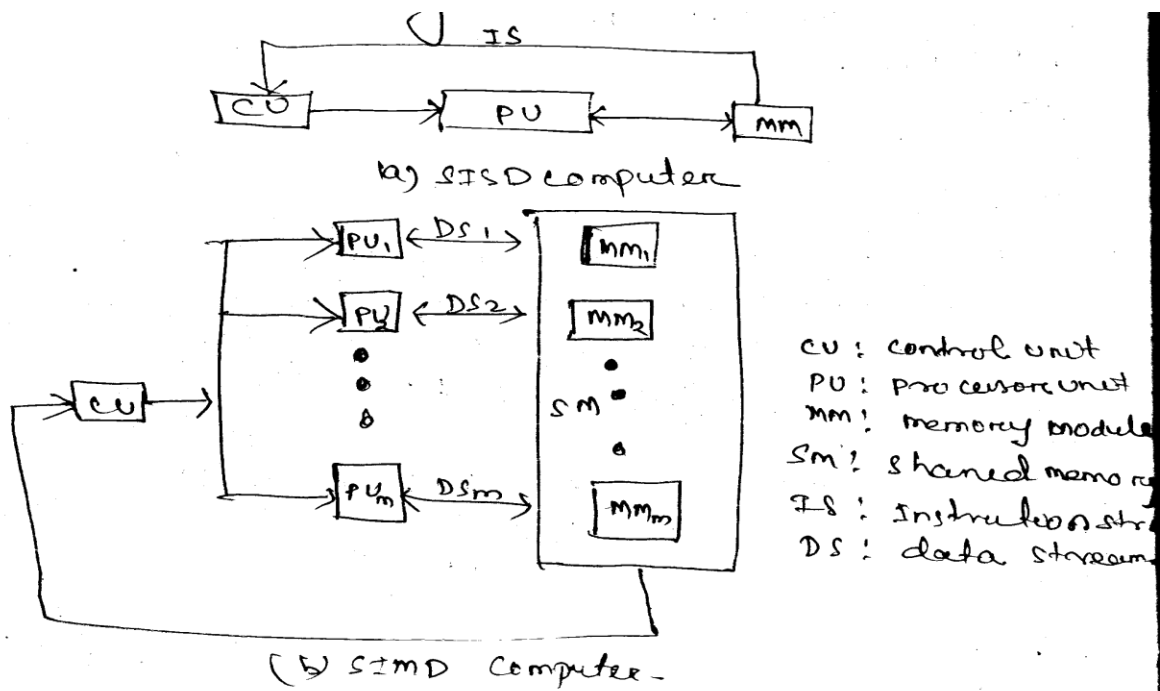 IS
CU PU MM
(a) SISD computer
PU1 DS1 MM1
PU2 DS2 MM2
CU
SM
PUm DSm MMm
CU : control unit
PU : processore unit
MM : memory module
SM : shared memory
IS : Instruction str
DS : data stream
(b) SIMD Computer